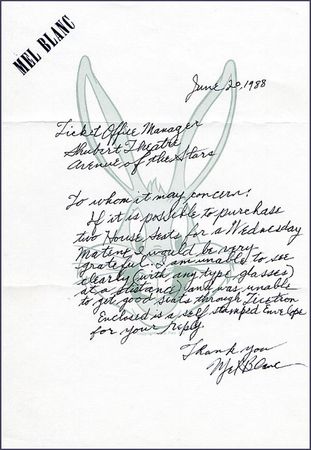 MEL BLANC
June 20, 1988
Ticket Office Manager
Shubert Theatre
Avenue of the Stars
To whom it may concern:
If it is possible to purchase
two House Seats for a Wednesday
Matinee, I would be very
grateful. I am unable to see
clearly (with any type glasses)
at a distance, and was unable
to get good seats through Ticetron
Enclosed is a self stamped Envelope
for your reply.
Thank you
Mel Blanc